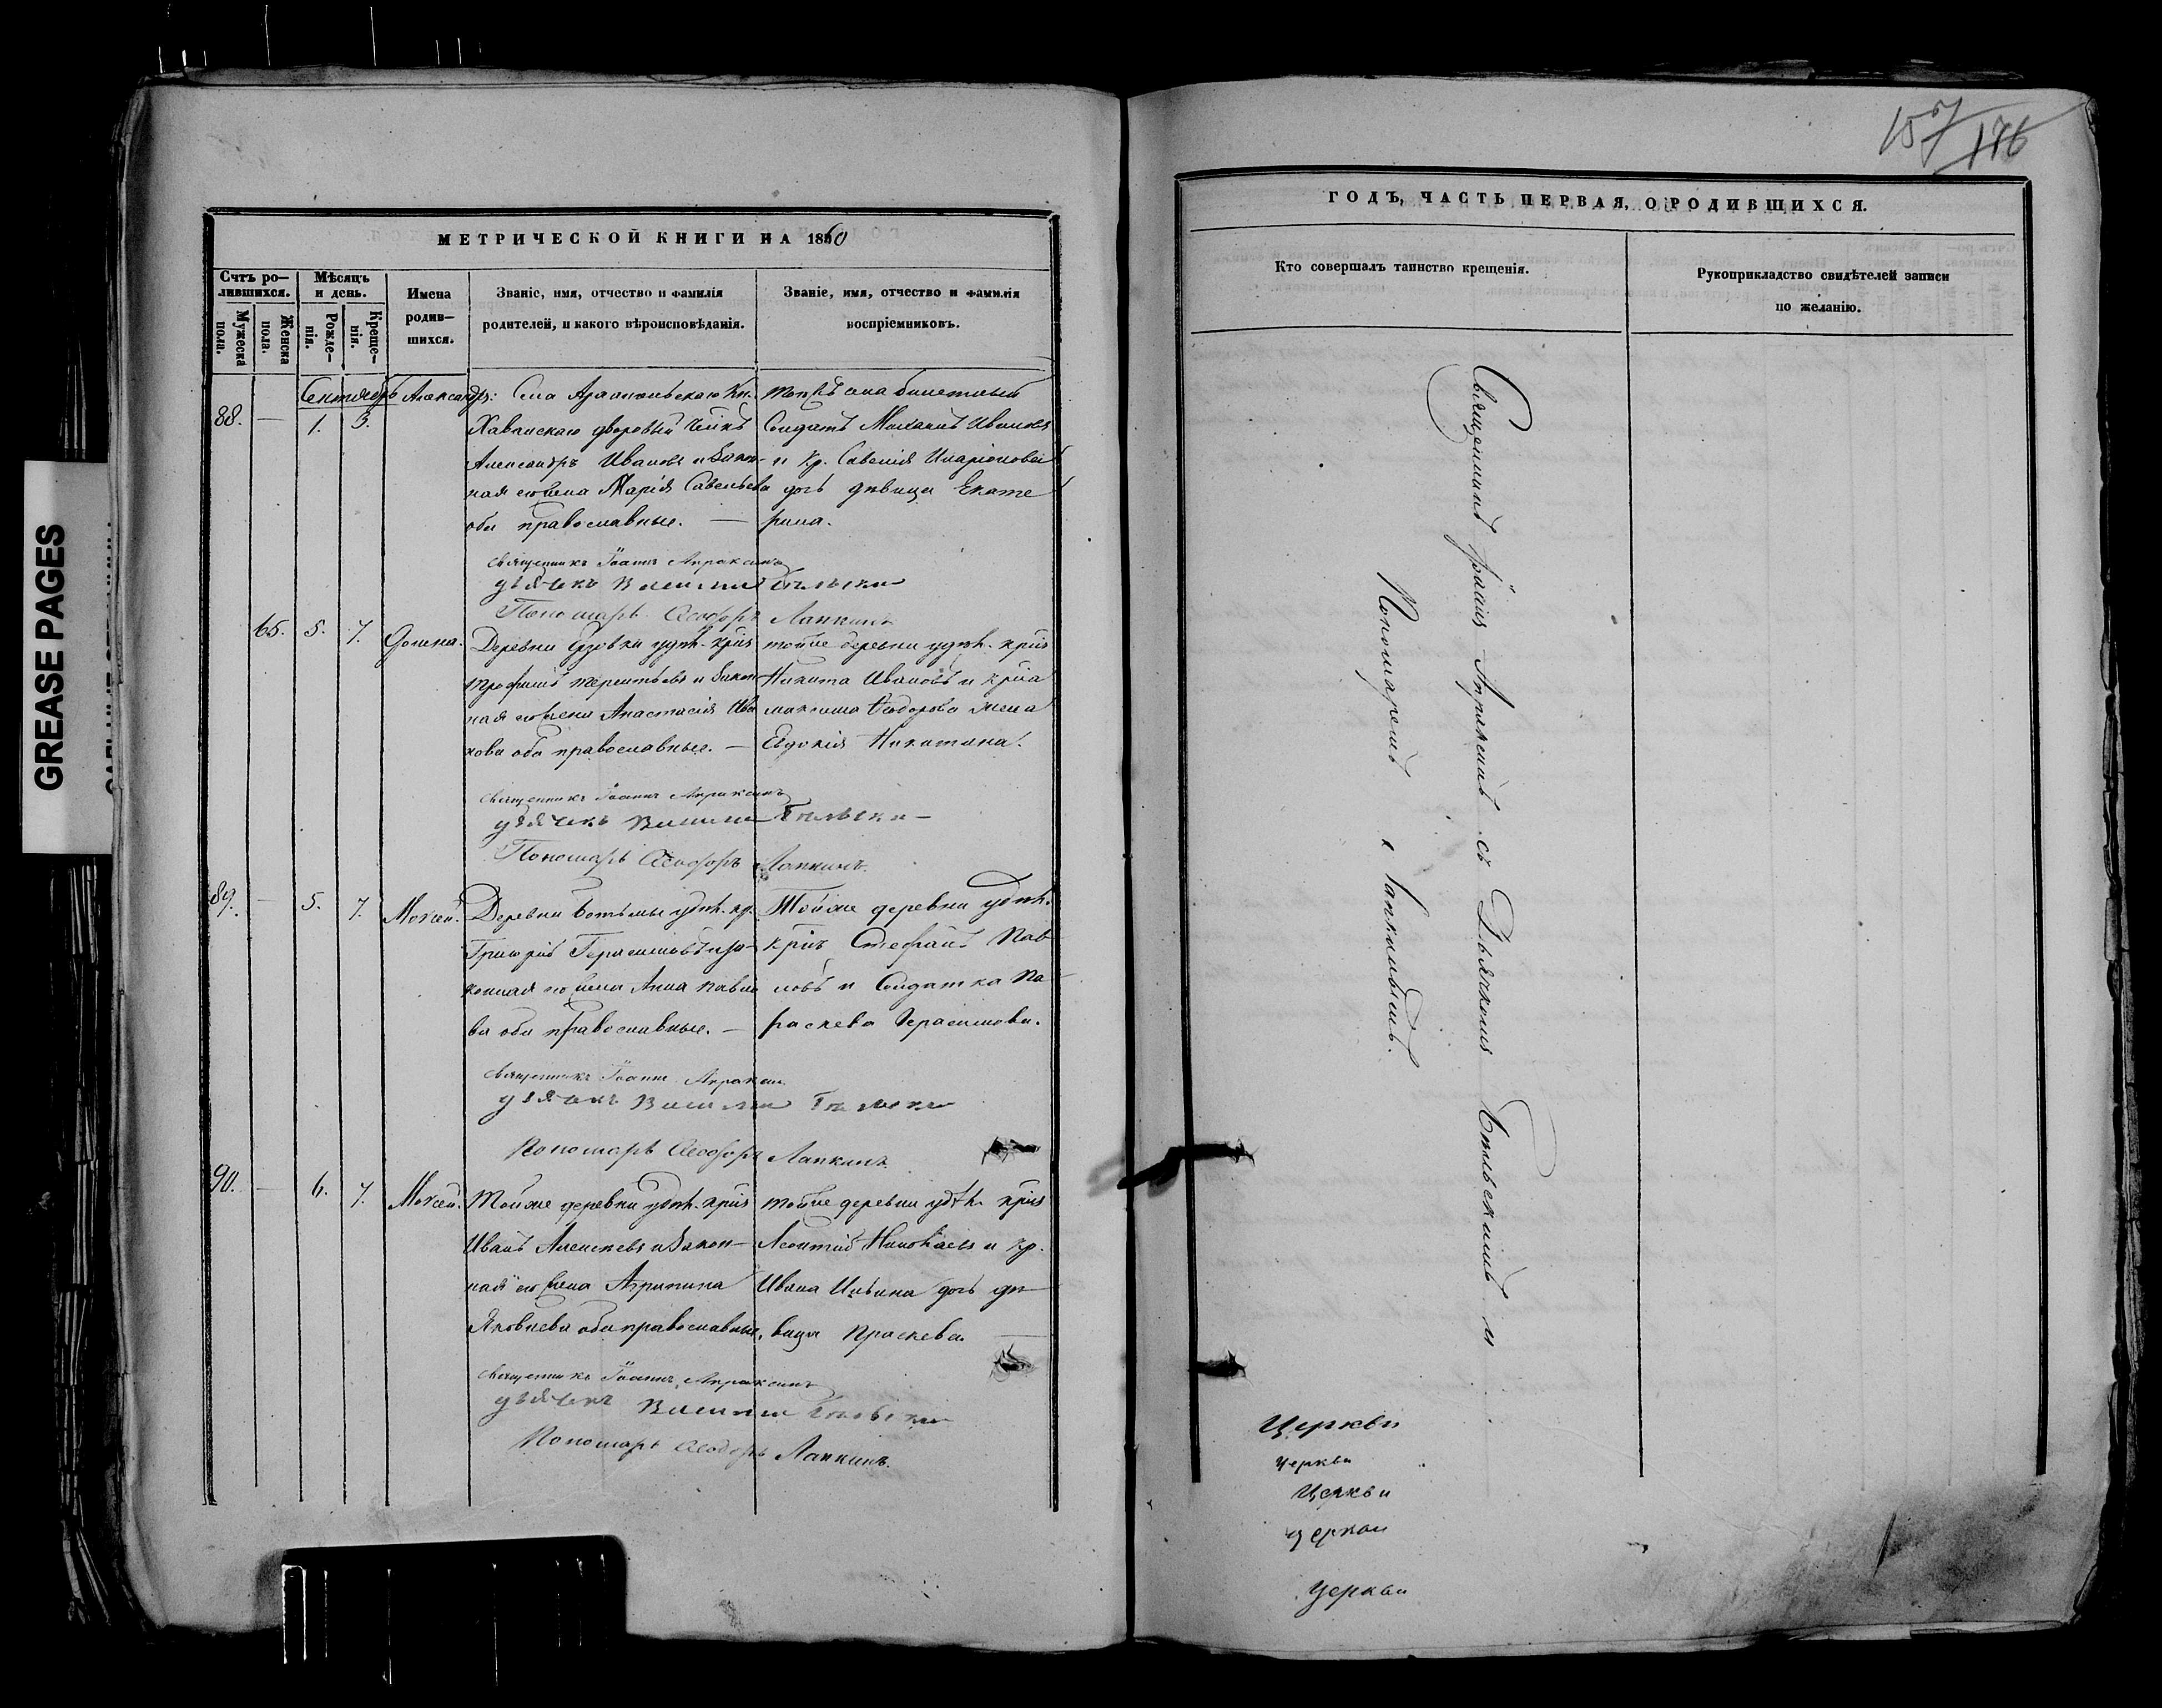 GREASE PAGES
157/176
МЕТРИЧЕСКОЙ КНИГИ НА 1860
Счтъ ро-
дившихся.
Мѣсяцъ
и день.
Мужеска
пола.
Женска
пола.
Рожде-
нія.
Креще-
нія.
Имена
родив-
шихся.
Званіе, имя, отчество и фамилія
родителей, и какого вѣроисповѣданія.
Званіе, имя, отчество и фамилія
воспріемниковъ.
Сентябрь
88. — 1. 3. Александръ:
Села
дворовый
Александръ Ивановъ и закон-
ная его жена Марія Савельева
оба православные. —
билетный
Солдатъ Ивановъ
и кр. Савелія Иларіонова
дочь дѣвица Екате
рина.
Священникъ Іоаннъ Апраксинъ
Дьячекъ Василий Бѣльски
Пономарь Ѳеодоръ Лапкинъ
65. 5. 7. Домна.
Деревни удѣл. кр
Трофимъ Терентьевъ и закон
ная его жена Анастасія Ива
нова оба православные. —
тойже деревни удѣл. кр
Никита Ивановъ и кр
Максима Ѳедорова жена
Евдокія Никитина.
Священникъ Іоаннъ Апраксинъ
Дьячекъ Василий Бѣльски
Пономарь Ѳеодоръ Лапкинъ.
89. — 5. 7. Моисей.
Деревни удѣл. кр.
Григорій Герасимовъ и за-
конная его жена Анна Павло
ва оба православные. —
Тойже деревни удѣл.
кр Стефанъ Пав
ловъ и Солдатка Па
раскева Герасимова.
Священникъ Іоаннъ Апраксин
Дьячекъ Василий Бѣльски
Пономарь Ѳеодоръ Лапкинъ
90. — 6. 7. Моисей.
Тойже деревни удѣл. кр
Иванъ Алексеевъ и закон-
ная его жена Агрипина
Яковлева оба православные.
тойже деревни удѣл. кр
Леонтій Николаевъ и кр.
Ивана Ильина дочь дѣ-
вица Праскева.
Священникъ Іоаннъ Апраксинъ
Дьячекъ Василий Бѣльски
Пономарь Ѳеодоръ Лапкинъ.
ГОДЪ, ЧАСТЬ ПЕРВАЯ, О РОДИВШИХСЯ.
Кто совершалъ таинство крещенія.
Рукоприкладство свидѣтелей записи
по желанію.
Священникъ Іоаннъ Апраксинъ съ Дьячкомъ Бѣльскимъ и
Пономаремъ Лапкинымъ.
Церкви
Церкви
Церкви
Церкви
Церкви